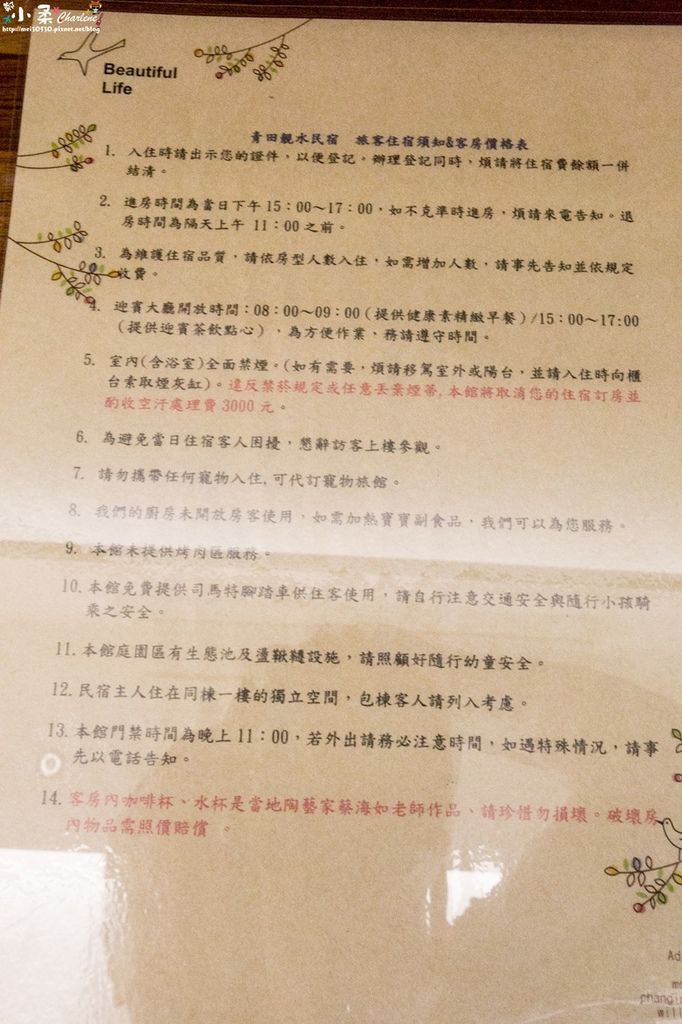 小柔 Charlene
http://mei30430.pixnet.net/blog
Beautiful
Life
青田親水民宿 旅客住宿須知&客房價格表
1. 入住時請出示您的證件，以便登記。辦理登記同時，煩請將住宿費餘額一併
結清。
2. 進房時間為當日下午 15：00～17：00，如不克準時進房，煩請來電告知。退
房時間為隔天上午 11：00 之前。
3. 為維護住宿品質，請依房型人數入住，如需增加人數，請事先告知並依規定
收費。
4. 迎賓大廳開放時間：08：00～09：00（提供健康素精緻早餐）/15：00～17:00
（提供迎賓茶飲點心），為方便作業，務請遵守時間。
5. 室內(含浴室)全面禁煙。(如有需要，煩請移駕室外或陽台，並請入住時向櫃
台索取煙灰缸)。違反禁菸規定或任意丟棄煙蒂,本館將取消您的住宿訂房並
酌收空汙處理費 3000 元。
6. 為避免當日住宿客人困擾，懇辭訪客上樓參觀。
7. 請勿攜帶任何寵物入住,可代訂寵物旅館。
8. 我們的廚房未開放房客使用，如需加熱寶寶副食品，我們可以為您服務。
9. 本館未提供烤肉區服務。
10. 本館免費提供司馬特腳踏車供住客使用，請自行注意交通安全與隨行小孩騎
乘之安全。
11. 本館庭園區有生態池及盪鞦韆設施，請照顧好隨行幼童安全。
12. 民宿主人住在同棟一樓的獨立空間，包棟客人請列入考慮。
13. 本館門禁時間為晚上 11：00，若外出請務必注意時間，如遇特殊情況，請事
先以電話告知。
14. 客房內咖啡杯、水杯是當地陶藝家蔡海如老師作品、請珍惜勿損壞。破壞房
內物品需照價賠償 。
Ad